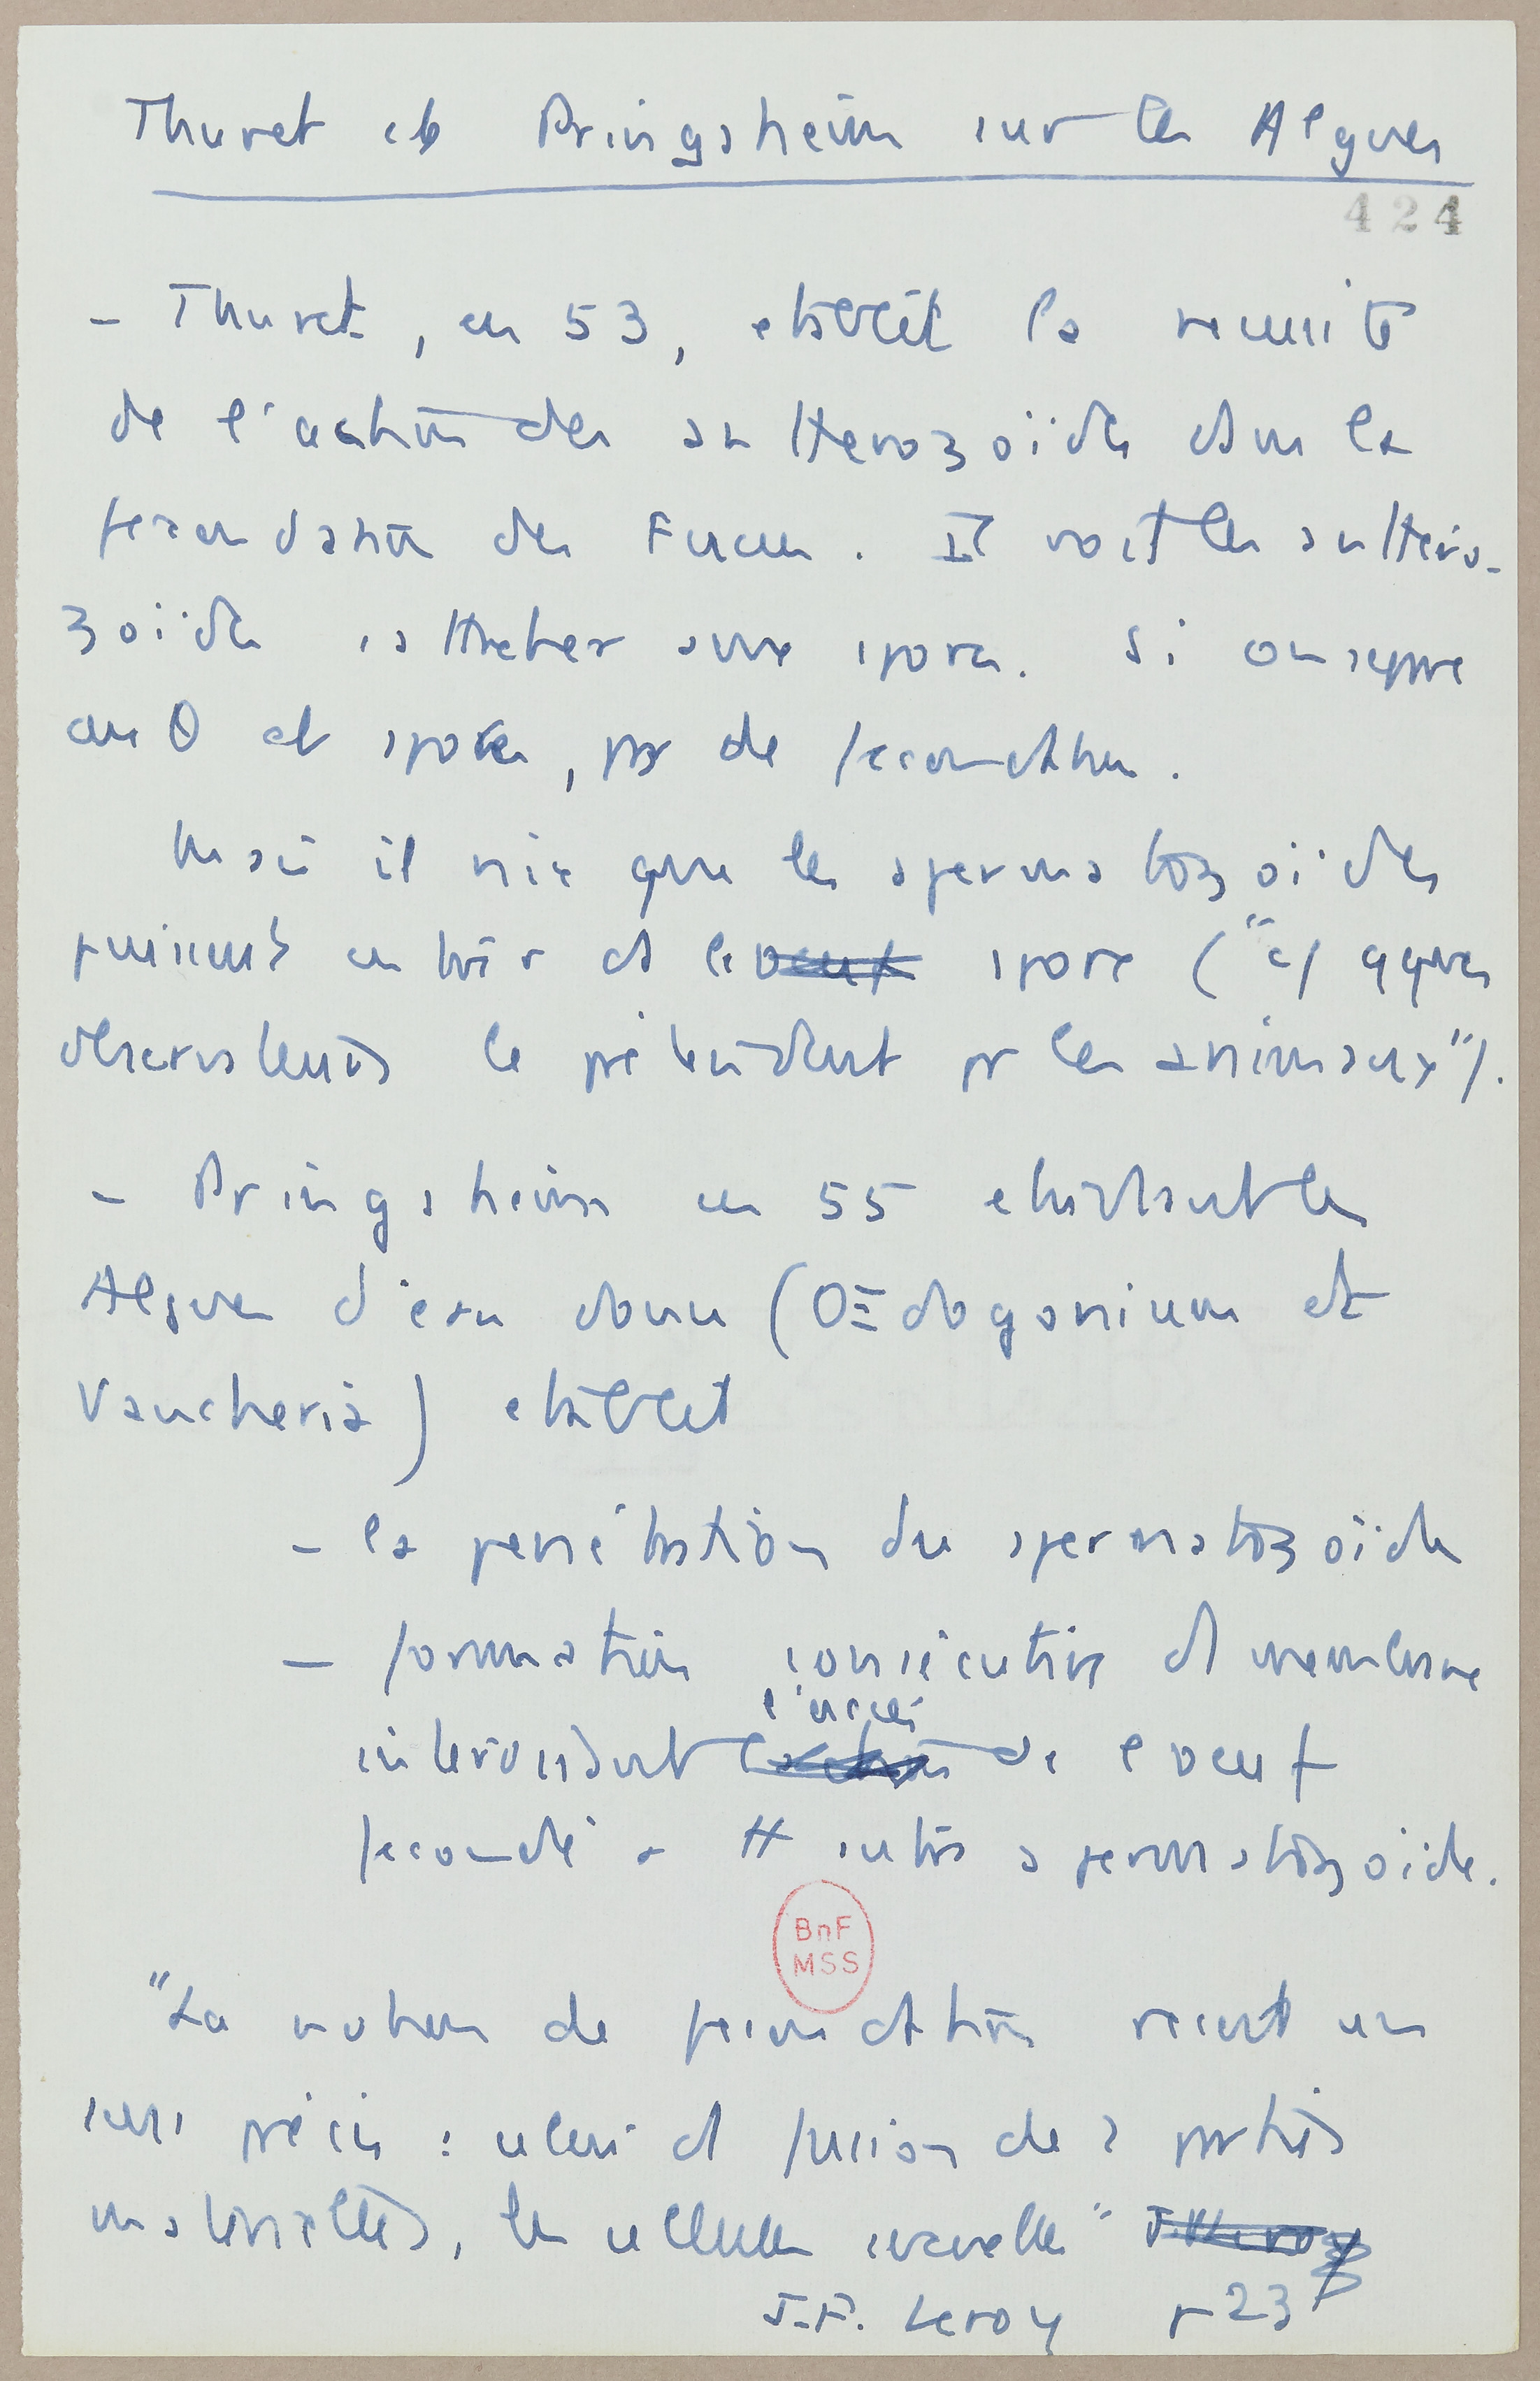 Thuret et Pringsheim sur les Algues
424
- Thuret, en 53, etablit la necessité
de l'action des antherozoïdes dans la
fecondation des Fucus. Il voit les anthero-
zoïdes s'attacher aux spores. Si on separe
et spores, pas de fecondation.
Mais il nie que les spermatozoïdes
puissent entrer ds la spore ("cf qques
observateurs le prétendent pr les animaux").
- Pringsheim en 55 etudiant les
Algues d'eau douce (OEdogonium et
Vaucheria) etablit
- la penétration du spermatozoïde
- formation consécutive d membrane
l'accès
interdisant de l'oeuf
fecondé a tt autre spermatozoïde.
BnF
MSS
"La notion de fecondation reçut un
sens précis : celui d fusion de 2 parties
materielles, les cellules sexuelles" J.F. Leroy
J.F. Leroy p 23